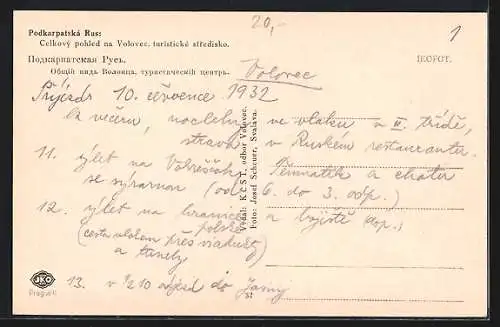 20,-
1
Podkarpatská Rus:
Celkový pohled na Volovec, turistické středisko.
Подкарпатская Русь.
Общій видъ Воловца, туристическій центръ.
JKOFOT.
Volovec
Příjezd 10. července 1932
k večeru, nocleh ve vlaku v III. třídě,
strava v Ruském restaurantu.
11. výlet na
se (od 6. do 3. odp.)
12. výlet na hranice polské a bojiště (dop.)
(cesta vlakem přes viadukty
a tunely
13. v ½10 odjezd do Jasiny
Vydal: KČST, odbor Volovec.
Foto: Josef Scheuer, Svalava.
JKO
Prague II
31